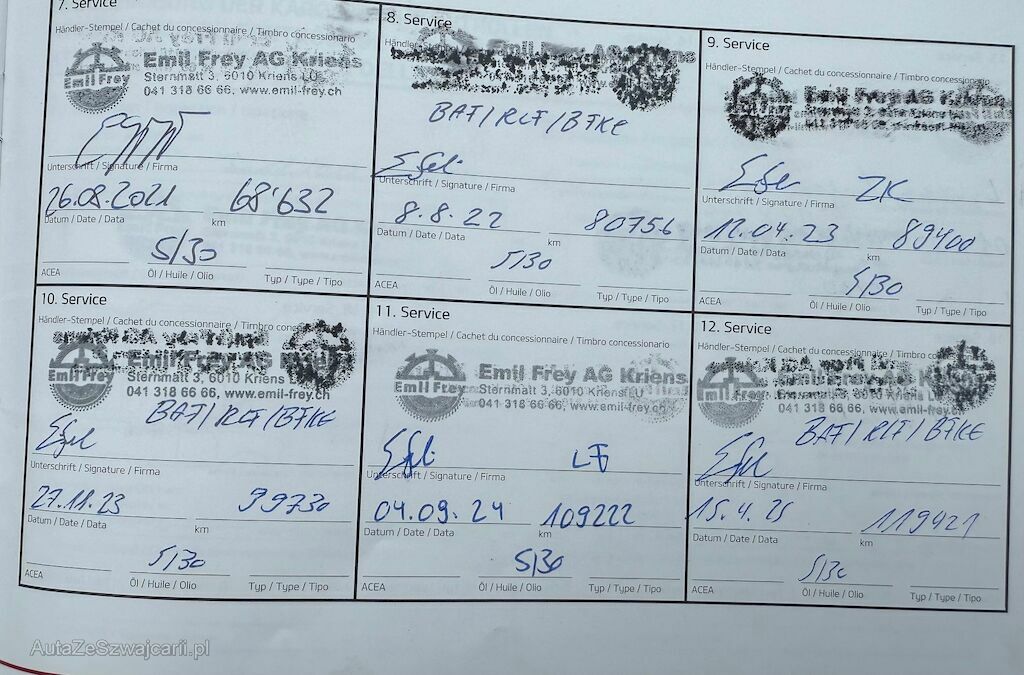 7. Service
Händler-Stempel / Cachet du concessionnaire / Timbro concessionario
Emil Frey AG Kriens
Emil Frey
Sternmatt 3, 6010 Kriens LU
041 318 66 66, www.emil-frey.ch
Unterschrift / Signature / Firma
26.08.2021 68'632
Datum / Date / Data km
5/30
ACEA Öl / Huile / Olio Typ / Type / Tipo
8. Service
Emil Frey AG Kriens
BAT/RLF/BFKE
Unterschrift / Signature / Firma
8.8.22 80756
Datum / Date / Data km
5/30
ACEA Öl / Huile / Olio Typ / Type / Tipo
9. Service
Händler-Stempel / Cachet du concessionnaire / Timbro concessionario
Emil Frey AG Kriens
ZK
Unterschrift / Signature / Firma
12.04.23 89400
Datum / Date / Data km
5/30
ACEA Öl / Huile / Olio Typ / Type / Tipo
10. Service
Händler-Stempel / Cachet du concessionnaire / Timbro
Emil Frey AG
Emil Frey
Sternmatt 3, 6010 Kriens
041 318 66 66, www.emil-frey.ch
BAT/RLF/BFKE
Unterschrift / Signature / Firma
27.11.23 99730
Datum / Date / Data km
5/30
ACEA Öl / Huile / Olio Typ / Type / Tipo
11. Service
Händler-Stempel / Cachet du concessionnaire / Timbro concessionario
Emil Frey AG Kriens
Emil Frey
Sternmatt 3, 6010 Kriens LU
041 318 66 66, www.emil-frey.ch
Unterschrift / Signature / Firma
04.09.24 109222
Datum / Date / Data km
5/30
ACEA Öl / Huile / Olio Typ / Type / Tipo
12. Service
Händler-Stempel / Cachet du concessionnaire / Timbro
Emil Frey
041 318 66 66, www.emil-frey.
BAT/RLF/BFKE
Unterschrift / Signature / Firma
15.4.25 119421
Datum / Date / Data km
5/30
ACEA Öl / Huile / Olio Typ / Type / Tipo
AutaZeSzwajcarii.pl